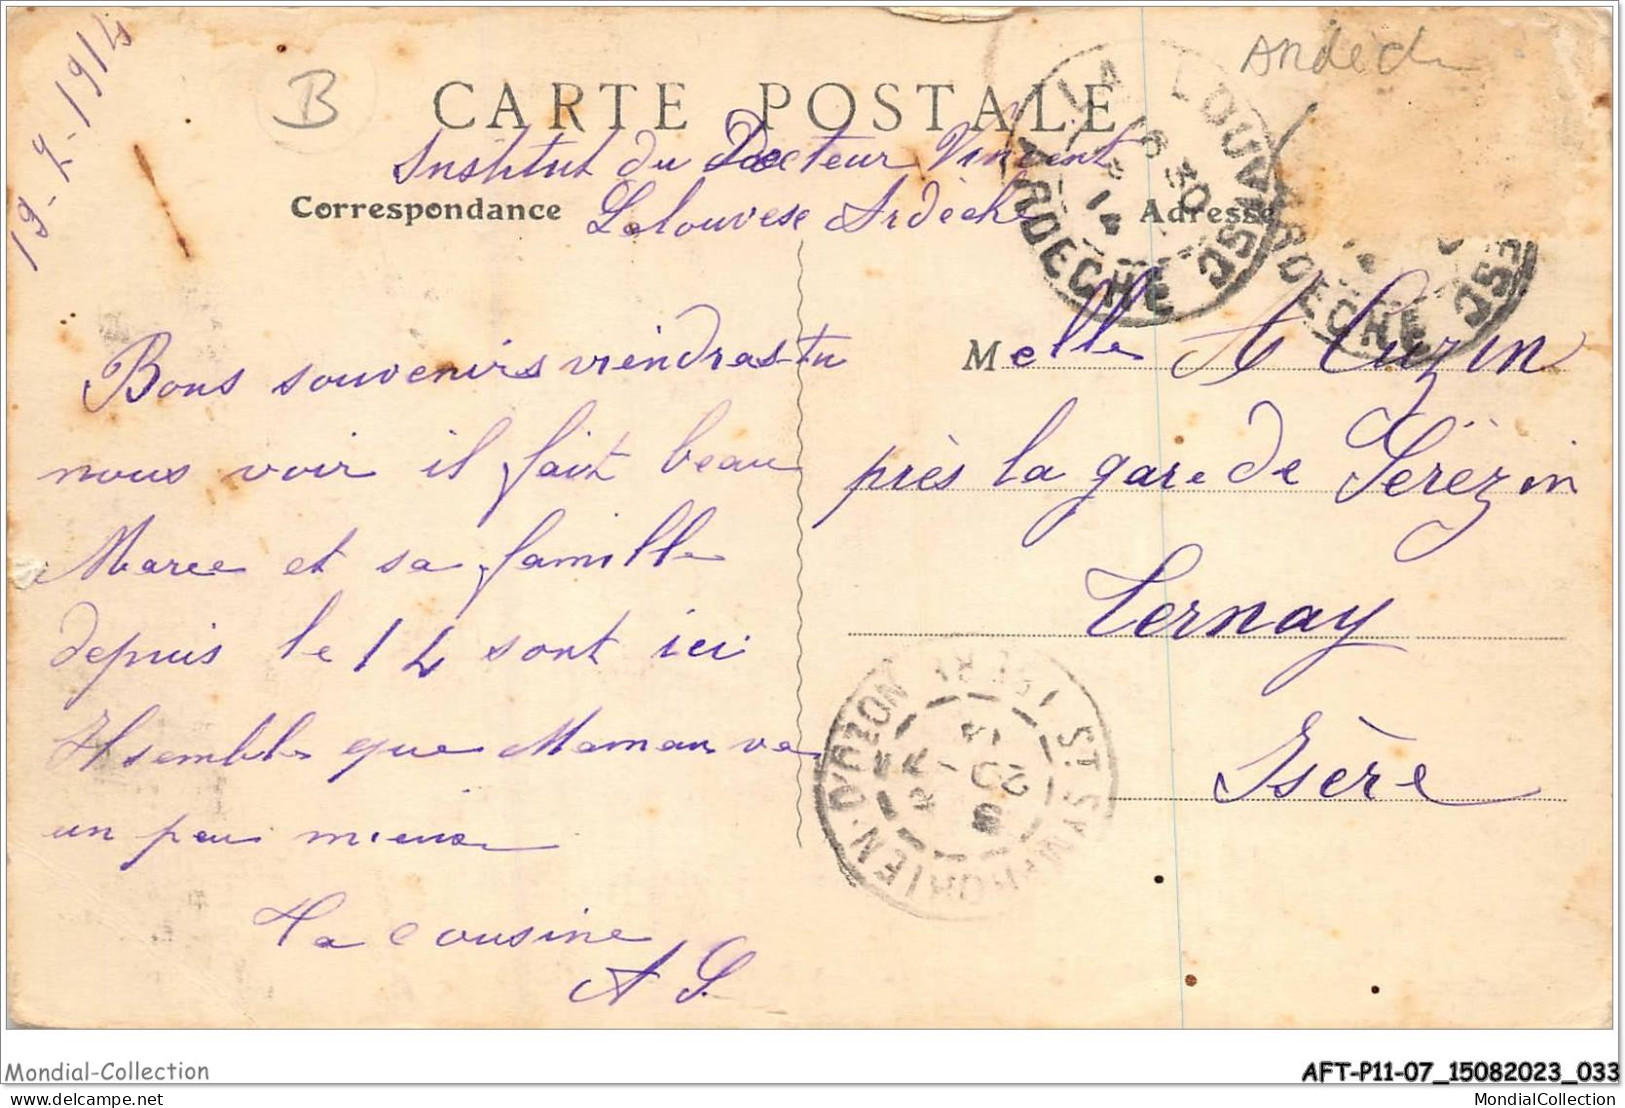 19-7-1914
B
Andech
CARTE POSTALE
Institut du Docteur Vincent
Lalouvesc Ardèche
Correspondance
Adresse
LA LOUVESC
ARDECHE
16 30
14
ARDECHE
Bons souvenirs viendras-tu
nous voir il fait beau
Maree et sa famille
depuis le 14 sont ici
Il semble que Maman va
un peu mieux
Ta cousine
A G.
Melle A Cuzin
près la gare de Serézin
Ternay
Isère
ST SYMPHORIEN-D'OZON
ISERE
20
14
Mondial-Collection
AFT-P11-07_15082023_033
delcampe.net
MondialCollection